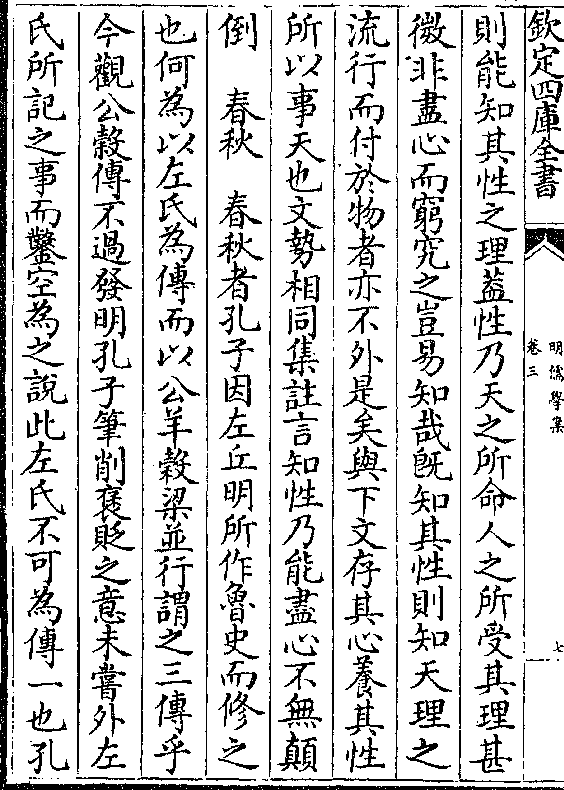 欽定四庫全書
明儒學集
卷三
七
則能知其性之理蓋性乃天之所命人之所受其理甚
微非盡心而窮究之豈易知哉既知其性則知天理之
流行而付於物者亦不外是矣與下文存其心養其性
所以事天也文勢相同集註言知性乃能盡心不無顛
倒　春秋　春秋者孔子因左丘明所作魯史而修之
也何為以左氏為傳而以公羊穀梁並行謂之三傳乎
今觀公穀傳不過發明孔子筆削褒貶之意未嘗外左
氏所記之事而鑿空為之說此左氏不可為傳一也孔